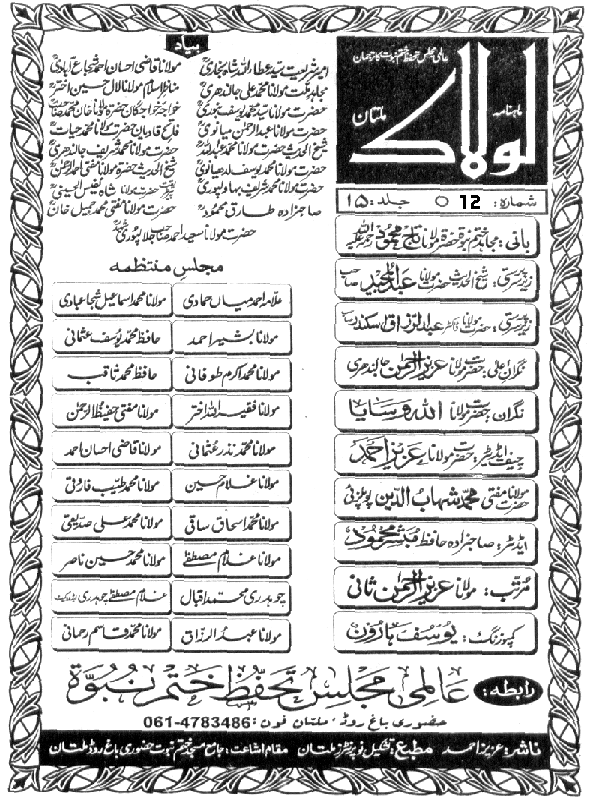 عالمی مجلس تحفظ ختم نبوت کا ترجمان
ماہنامہ
لولاک
ملتان
شمارہ: 12 ○ جلد: ۱۵
بانی: مجاہد ختم نبوۃ حضرۃ مولانا تاج محمود رحمۃ اللہ علیہ
زیر سرپرستی: شیخ الحدیث حضرت مولانا عبدالمجید صاحب
زیر سرپرستی: حضرت مولانا ڈاکٹر عبدالرزاق سکندر
نگران اعلیٰ: حضرت مولانا عزیز الرحمٰن جالندھری
نگران: حضرت مولانا اللہ وسایا
چیف ایڈیٹر: حضرت مولانا عزیز احمد
حضرت مولانا مفتی محمد شہاب الدین پوپلزئی
ایڈیٹر: صاحبزادہ حافظ مبشر محمود
مرتب: مولانا عزیز الرحمٰن ثانی
کمپوزنگ: یوسف ہارون
بیاد
امیر شریعت سید عطاء اللہ شاہ بخاری مولانا قاضی احسان احمد شجاع آبادی
مجاہد ملت مولانا محمد علی جالندھری مناظر اسلام مولانا لال حسین اختر
حضرت مولانا سید محمد یوسف بنوری خواجہ خواجگان حضرۃ مولانا خان محمد صاحب
حضرت مولانا عبدالرحمٰن میانوی فاتح قادیان حضرت مولانا محمد حیات
شیخ الحدیث حضرت مولانا محمد عبداللہ حضرت مولانا محمد شریف جالندھری
حضرت مولانا محمد یوسف لدھیانوی شیخ الحدیث حضرۃ مولانا مفتی احمد الرحمٰن
حضرت مولانا محمد شریف بہاولپوری حضرت مولانا شاہ نفیس الحسینی
صاحبزادہ طارق محمود حضرت مولانا مفتی محمد جمیل خان
حضرت مولانا سعید احمد صاحب جلالپوری
مجلس منتظمہ
علامہ احمد میاں حمادی مولانا محمد اسماعیل شجاعبادی
مولانا بشیر احمد حافظ محمد یوسف عثمانی
مولانا محمد اکرم طوفانی حافظ محمد ثاقب
مولانا فقیہ اللہ اختر مولانا مفتی حفیظ الرحمٰن
مولانا محمد نذر عثمانی مولانا قاضی احسان احمد
مولانا غلام حسین مولانا محمد طیب فاروقی
مولانا محمد اسحاق ساقی مولانا محمد علی صدیقی
مولانا غلام مصطفیٰ مولانا محمد حسین ناصر
چوہدری محمد اقبال غلام مصطفیٰ چوہدری ایڈووکیٹ
مولانا عبدالرزاق مولانا محمد قاسم رحمانی
رابطہ: عالمی مجلس تحفظ ختم نبوۃ
حضوری باغ روڈ، ملتان فون: 061-4783486
ناشر: عزیز احمد مطبع: تشکیل نو پرنٹرز ملتان مقام اشاعت: جامع مسجد ختم نبوت حضوری باغ روڈ ملتان